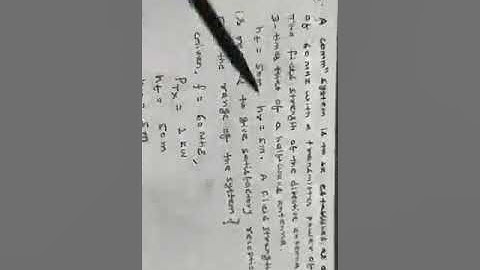 A commⁿ system is to be established at a
of 60 MHz with a transmitter power of
The field strength of the directive antenna
3-times that of a half-wave antenna.
ht = 50m hr = 5m. A field strength
is to give satisfactory reception
the range of the system?
Given, f = 60 MHz,
PTx = 1 kW
ht = 50m
= 5m